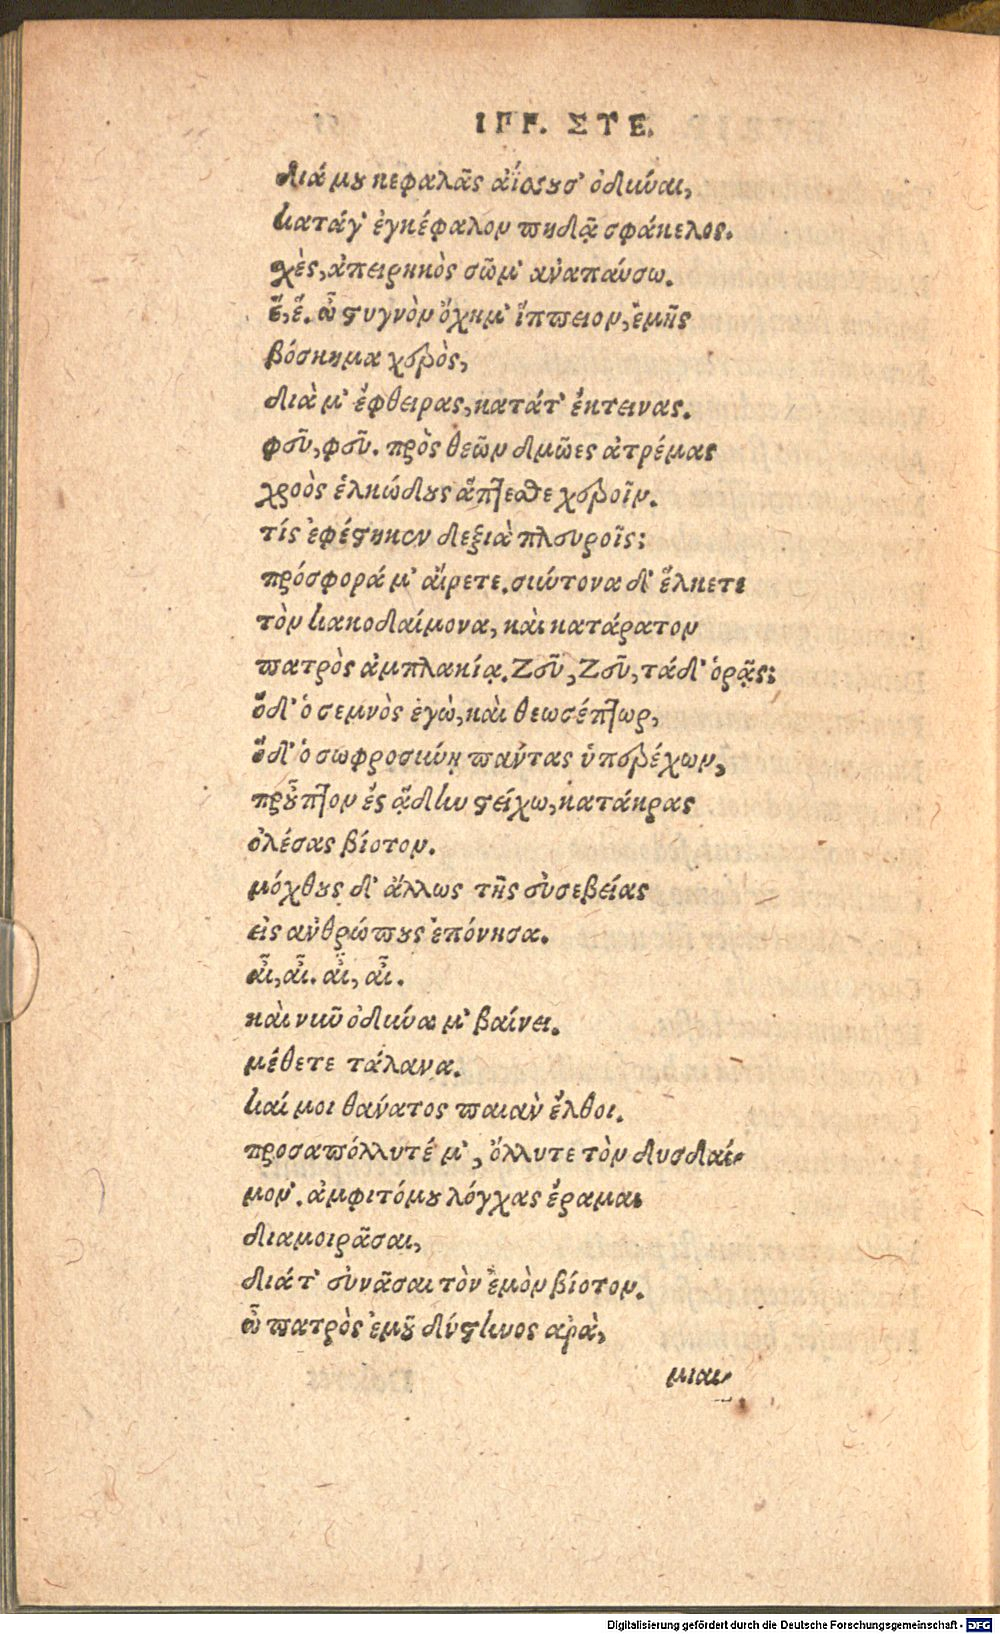 ΙΠΠ. ΣΤΕ.
διά μου κεφαλᾶς ἀΐσσουσ' ὀδύναι,
κατάγ' ἐγκέφαλον πηδᾷ σφάκελος.
χὲς, ἀπειρηκὸς σῶμ' ἀναπαύσω.
ἒ, ἔ. ὦ στυγνὸν ὄχημ' ἵππειον, ἐμῆς
βόσκημα χερὸς,
διὰ μ' ἔφθειρας, κατάτ' ἔκτεινας.
φεῦ, φεῦ. πρὸς θεῶν δμῶες ἀτρέμας
χροὸς ἑλκώδους ἅπτεσθε χεροῖν.
τίς ἐφέστηκεν δεξιὰ πλευροῖς;
πρόσφορά μ' αἴρετε. σύντονα δ' ἕλκετε
τὸν κακοδαίμονα, καὶ κατάρατον
πατρὸς ἀμπλακίᾳ. Ζεῦ, Ζεῦ, τάδ' ὁρᾷς;
ὅδ' ὁ σεμνὸς ἐγὼ, καὶ θεωσέπτωρ,
ὅδ' ὁ σωφροσύνῃ πάντας ὑπερέχων,
πρὖπτον ἐς ᾅδην στείχω, κατάκρας
ὀλέσας βίοτον.
μόχθους δ' ἄλλως τῆς εὐσεβείας
εἰς ἀνθρώπους ἐπόνησα.
αἶ, αἶ. αἶ, αἶ.
καὶ νῦν ὀδύνα μ' βαίνει.
μέθετε τάλανα.
καί μοι θανάτος παιὰν ἔλθοι.
προσαπόλλυτέ μ', ὄλλυτε τὸν δυσδαί-
μον'. ἀμφιτόμου λόγχας ἔραμαι
διαμοιρᾶσαι,
διάτ' εὐνᾶσαι τὸν ἐμὸν βίοτον.
ὦ πατρὸς ἐμοῦ δύστηνος ἀρὰ,
μιαι-
Digitalisierung gefördert durch die Deutsche Forschungsgemeinschaft - DFG